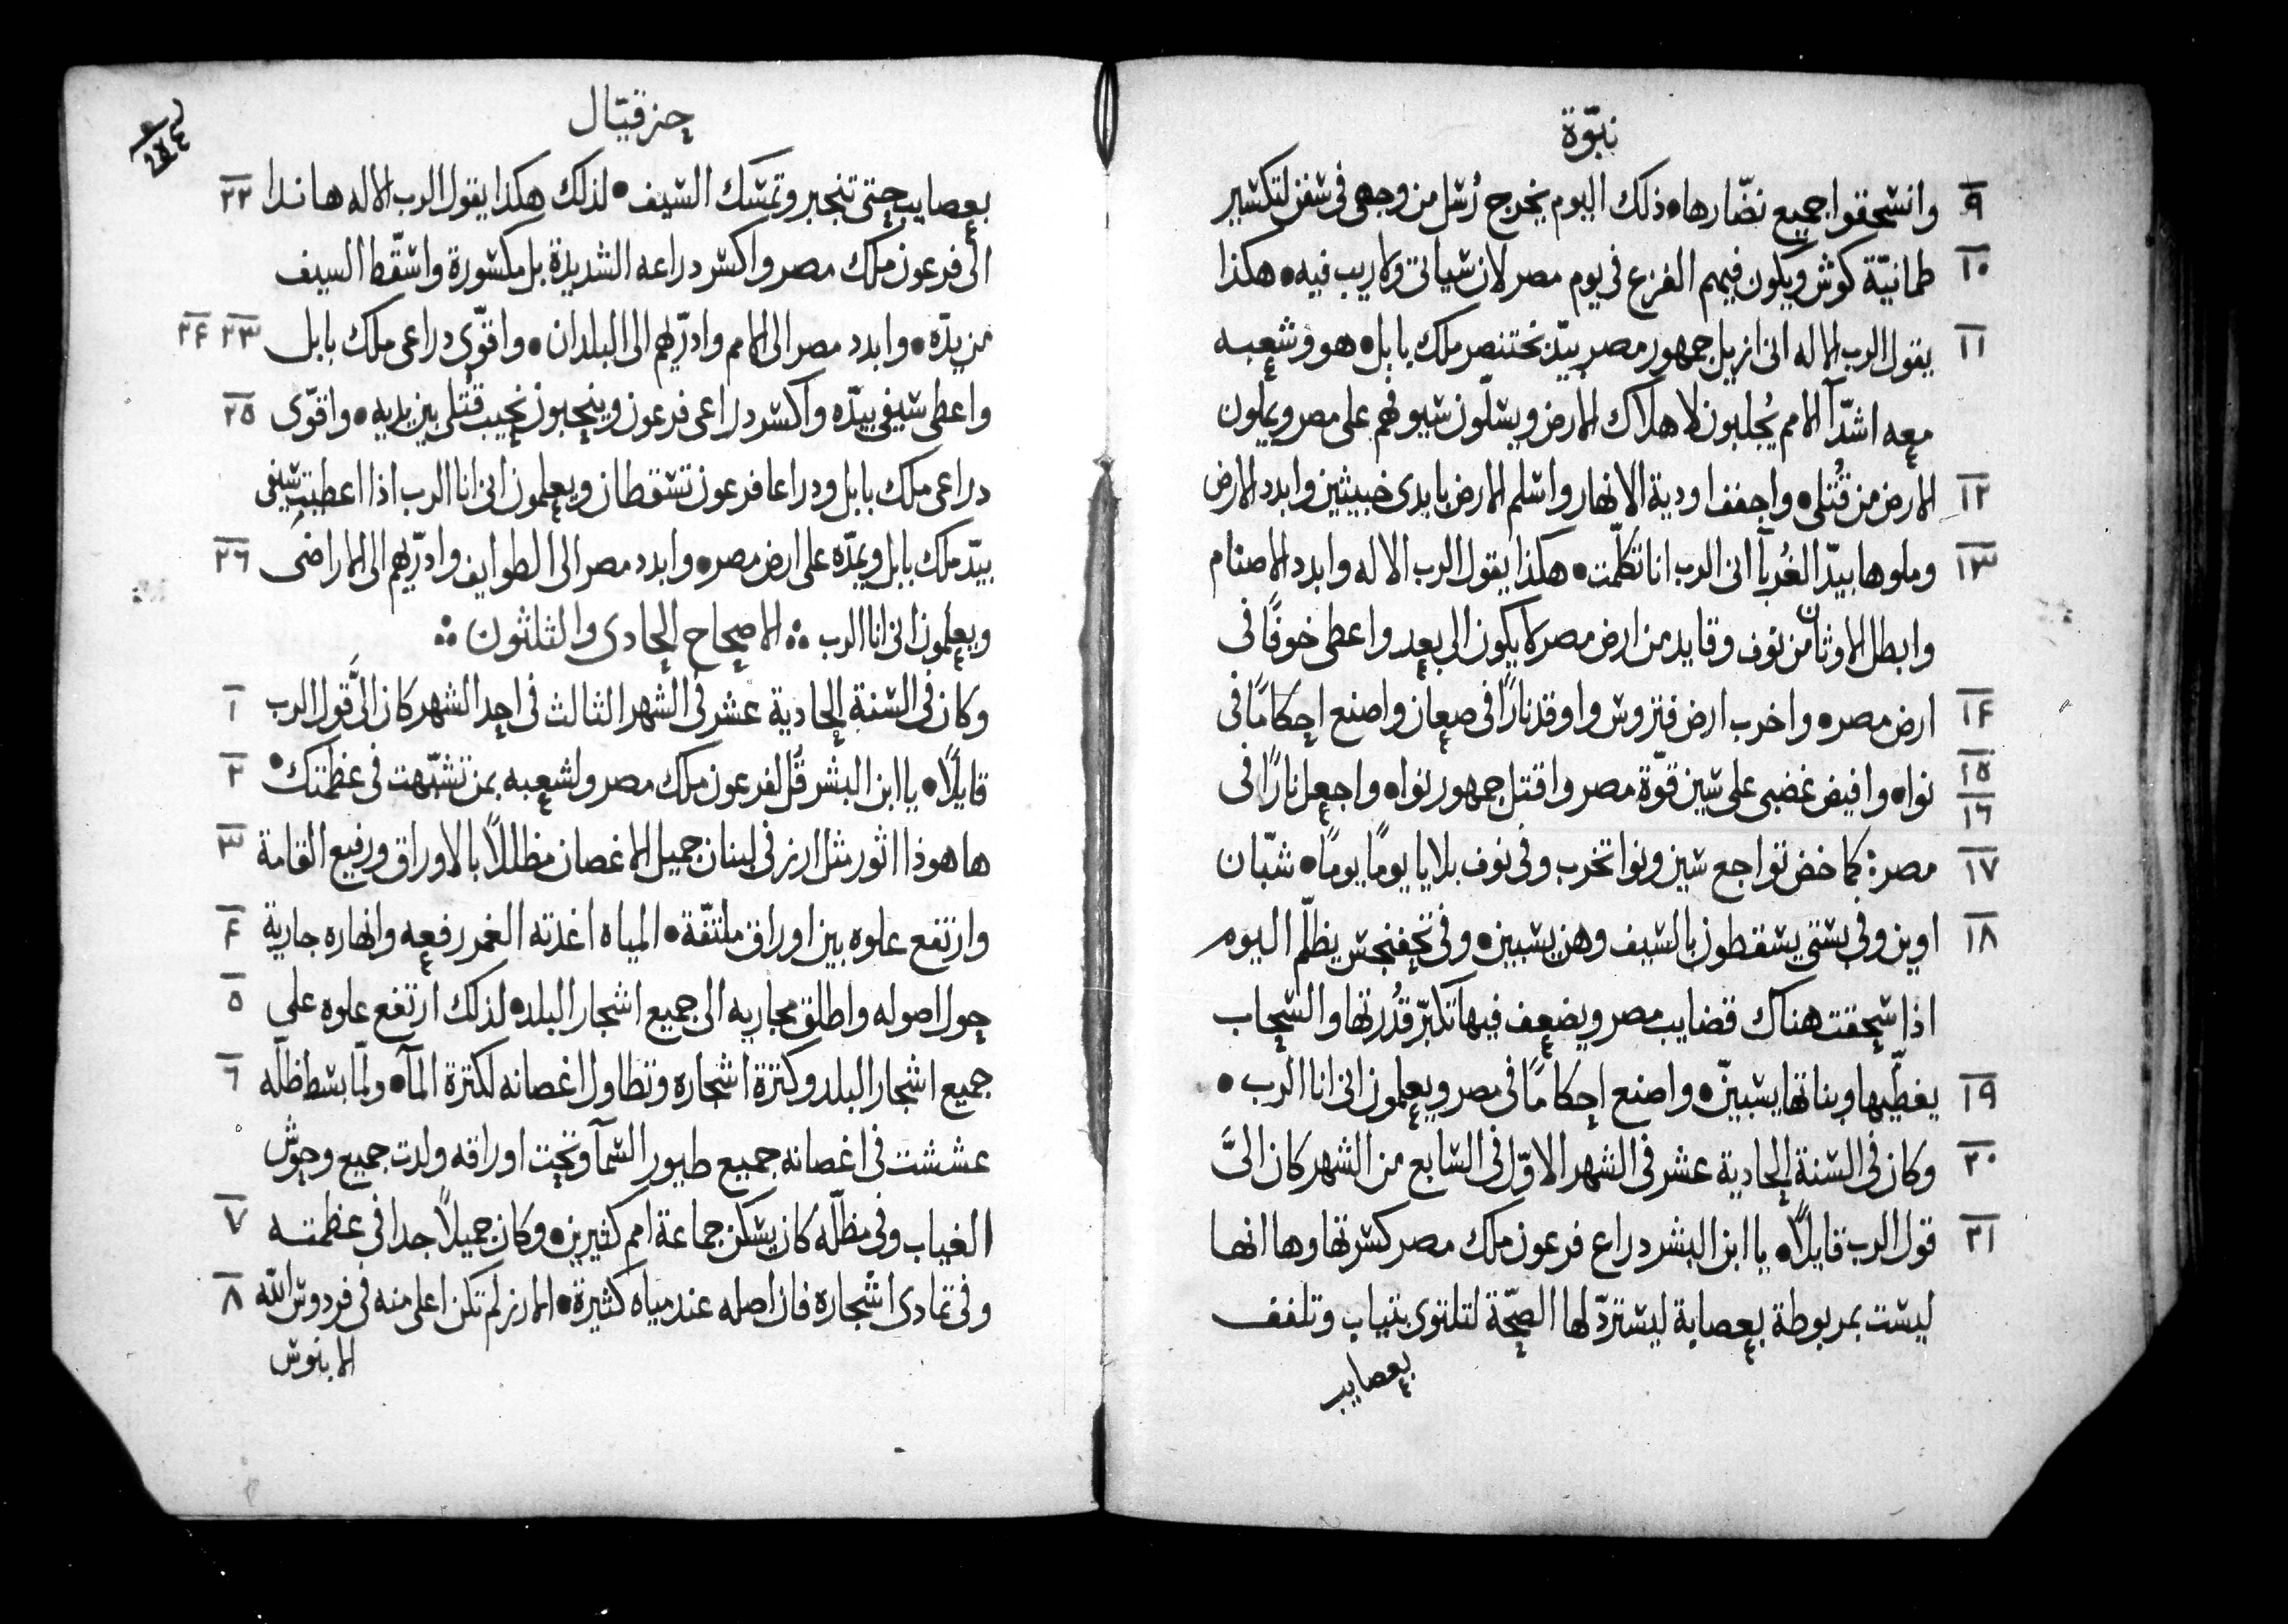 نبوّة
٩ وانسحقوا جميع نصّارها • ذلك اليوم يخرج رُسل من وجهى فى سفن لتكسير
١٠ طمانيّة كوش ويكون فيهم الفزع فى يوم مصر لان سياتى ولا ريب فيه • هكذا
١١ يقول الرب الاله انى ازيل جمهور مصر بيدّ بختنصر ملك بابل • هو وشعبه
معه اشدّآ الامم يُجلبون لاهلاك الارض ويسلّون سيوفهم على مصر ويملون
١٢ الارض من قُتلى • واجفف اودية الانهار واسلم الارض بايدى خبيثين وابدد الارض
١٣ وملوها بيدّ الغُربآ انى الرب انا تكلّمت • هكذا يقول الرب الاله وابدد الاصنام
وابطل الاوثان من نوف وقايد من ارض مصر لا يكون الى بعد واعطى خوفًا فى
١٤ ارض مصر • واخرب ارض فتروس واوقد نارًا فى صعان واصنع احكامًا فى
١٥ ١٦ نوا • وافيض غضبى على سين قوّة مصر واقتل جمهور نوا • واجعل نارًا فى
١٧ مصر: كماخض تواجع سين ونوا تخرب وفى نوف بلايا يومًا يومًا • شبّان
١٨ اوين وفى بستى يسقطون بالسيف وهن يسبين • وفى تحفنحس يظلّم اليوم
اذا سحقت هناك قضايب مصر ويضعف فيها تكبّر قُدرتها والسحاب
١٩ يغطّيها وبناتها يسبينّ • واصنع احكامًا فى مصر ويعلمون انى انا الرب •
٢٠ وكان فى السنة الحادية عشر فى الشهر الاوّل فى السابع من الشهر كان الىَّ
٢١ قول الرب قايلًا • يا ابن البشر دراع فرعون ملك مصر كسرتها وها انها
ليست بمربوطة بعصابة ليستردّ لها الصحّة لتلتوى بثياب وتلفف
بعصايب
حزقيّال
٢٢ بعصايب حتى تنجبر وتمسك السيف • لذلك هكذا يقول الرب الاله هانذا
الى فرعون ملك مصر واكسر دراعه الشديدة بل مكسورة واسقّط السيف
٢٣ ٢٤ من يدّه • وابدد مصر الى الامم وادرّيهم الى البلدان • واقوّى دراعى ملك بابل
٢٥ واعطى سيفى بيدّه واكسر دراعى فرعون وينحبون نحيب قُتلى بين يديه • واقوّى
دراعى ملك بابل ودراعا فرعون تسقطان ويعلمون انى انا الرب اذا اعطيت سيفى
٢٦ بيدّ ملك بابل ويمدّه على ارض مصر • وابدد مصر الى الطوايف وادرّيهم الى الاراضى
ويعلمون انى انا الرب ؞ الاصحاح الحادى والثلثون ؞
١ وكان فى السنة الحادية عشر فى الشهر الثالث فى احد الشهر كان الىَّ قول الرب
٢ قايلًا • يا ابن البشر قُل لفرعون ملك مصر ولشعبه بمن تشبّهت فى عظمتك •
٣ ها هوذا اثور مثل ارز فى لبنان جميل الاغصان مظللًا بالاوراق ورفيع القامة
٤ وارتفع علوه بين اوراق ملتفّة • المياه اغذته الغمر رفعه وانهاره جارية
٥ حول اصوله واطلق مجاريه الى جميع اشجار البلد • لذلك ارتفع علوه على
٦ جميع اشجار البلد وكثرة اشجاره وتطاول اغصانه لكثرة المآ • ولمّا بسط ظلّه
عششت فى اغصانه جميع طيور السمآ وتحت اوراقه ولدت جميع وحوش
٧ الغياب وفى مظلّه كان يسكن جماعة امم كثيرين • وكان جميلًا جدا فى عظمته
٨ وفى تمادى اشجاره فان اصله عند مياه كثيرة • الارز لم تكن اعلى منه فى فردوس اللّه
الابنوس